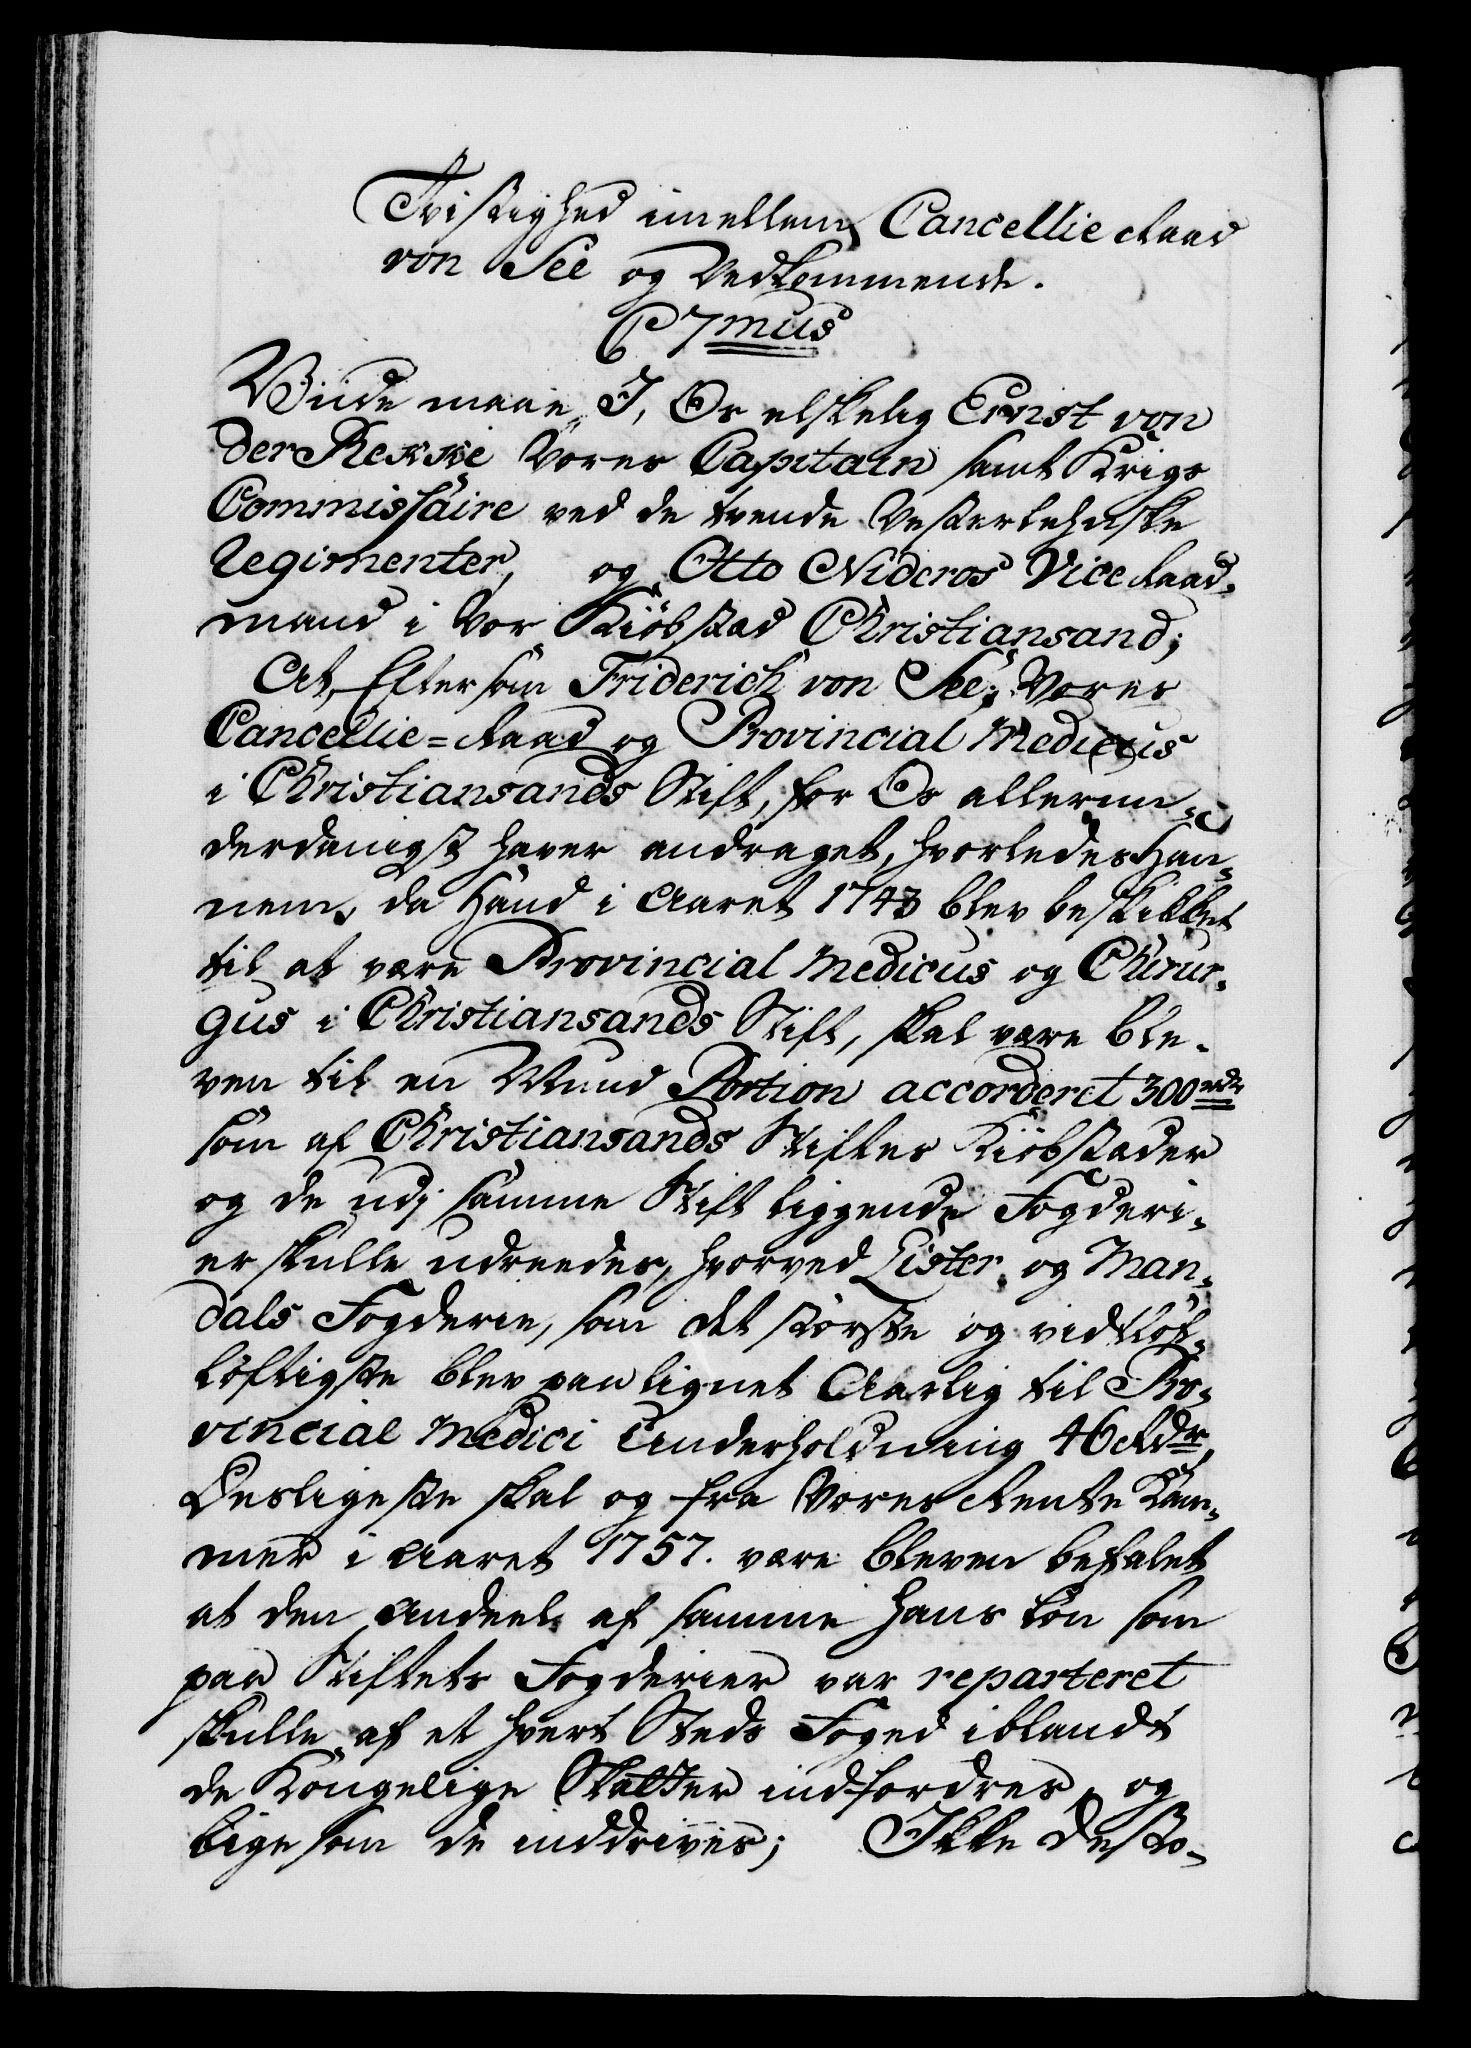 Tvistighed imellem Cancellie Raad
von See og Vedkommende.
C 7mus
Viide maae I, Os elskelig Ernst von
der Rekke Vores Capitain samt Krigs
Commissaire ved de tvende Vesterlehnske
Regimenter, og Otto Nideros Vice Raad-
mand i Vor Kiöbstad Christiansand;
At, Eftersom Friderich von See, Vores
Cancellie=Raad og Provincial Medicus
i Christiansands Stift, for Os allerun-
derdanigst haver andraget, hvorledes Han-
nem, da Hand i Aaret 1743 blev beskikket
til at være Provincial Medicus og Chirur-
gus i Christiansands Stift, skal være ble-
ven til en Mund Portion accorderet 300 rdr
som af Christiansands Stiftes Kiöbstæder
og de udj samme Stift liggende Fogderi-
er skulle udreedes, hvorved Lister og Man-
dals Fogderie, som det störste og vidtlöf-
löftigste blev paalignet Aarlig til Pro-
vincial Medici Underholdning 46 Rdr,
Desligeste skal og fra Vores Rente Kam-
mer i Aaret 1757. være bleven befalet
at den Andeel af samme hans Lön som
paa Stiftets Fogderier var reparteret
skulle af et hvert Steds Foged iblandt
de Kongelige Skatter indfordres, og
ligesom de inddrives; Ikke desto-